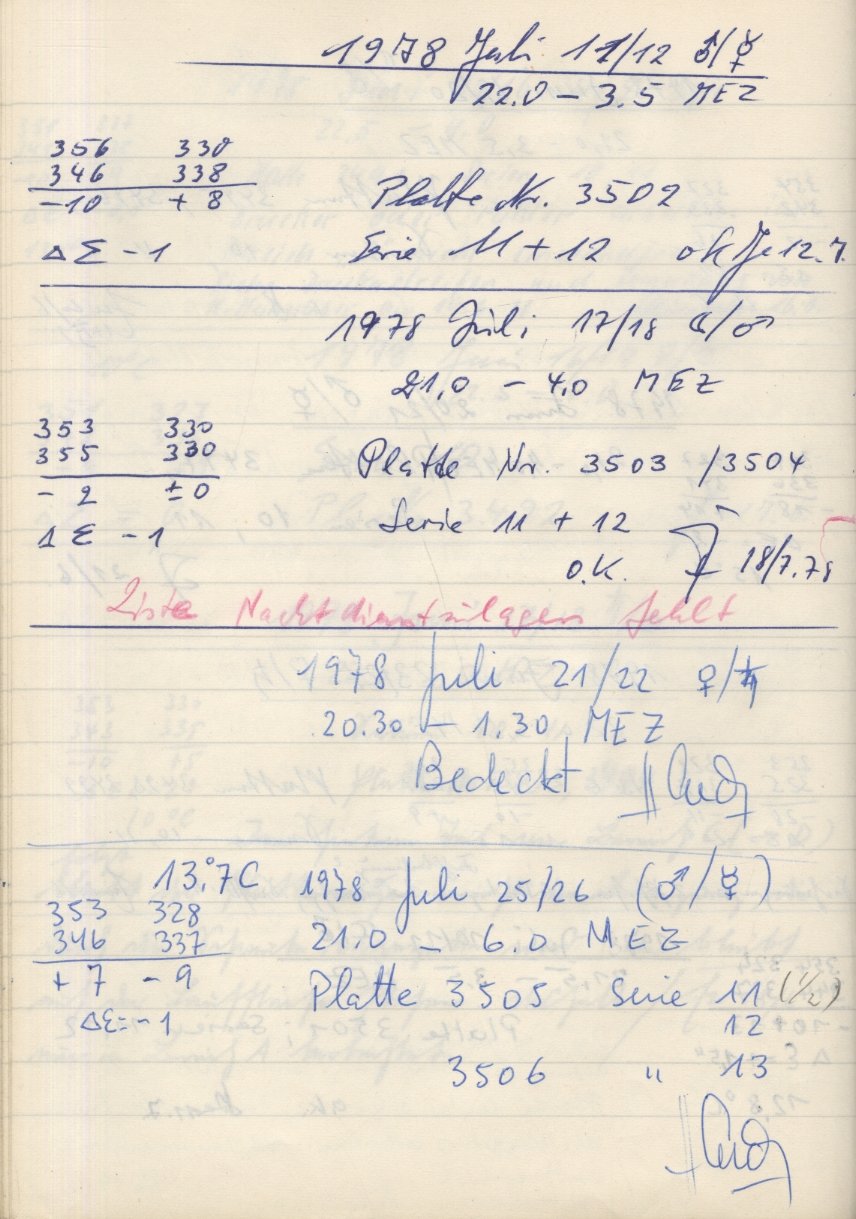 1978 Juli 11/12 ♂/☿
22.0 – 3.5 MEZ
356 330
346 338
-10 + 8
Platte Nr. 3502
Δ Σ - 1
Serie 11 + 12 ok 12.7.
1978 Juli 17/18 ☾/♂
21.0 – 4.0 MEZ
353 330
355 330
- 2 ± 0
Platte Nr. 3503 / 3504
Δ Σ - 1
Serie 11 + 12
O.K. 18/7.78
Liste Nachtdienstzulagen fehlt
1978 Juli 21/22 ♀/♄
20.30 – 1.30 MEZ
Bedeckt
13.°7C
1978 Juli 25/26 (♂/☿)
353 328
346 337
+ 7 - 9
21.0 – 6.0 MEZ
Platte 3505 Serie 11 (1/2)
ΔΣ = - 1
12
3506 " 13